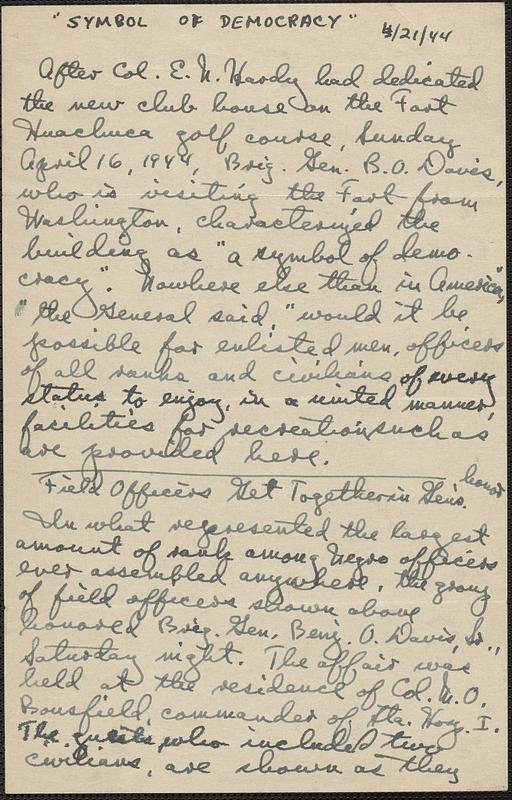 "SYMBOL OF DEMOCRACY" 4/21/44
After Col. E. N. Hardy had dedicated
the new club house on the Fort
Huachuca golf course, Sunday
April 16, 1944, Brig. Gen. B.O. Davis,
who is visiting the Fort from
Washington, characterized the
building as "a symbol of demo-
cracy". Nowhere else than in America,"
"the General said, "would it be
possible for enlisted men, officers
of all ranks and civilians of every
status to enjoy, in a united manner,
facilities for recreation such as
are provided here.
Field Officers Get Together in Gen's. honor
In what represented the largest
amount of rank among Negro officers
ever assembled anywhere, the group
of field officers shown above
honored Brig. Gen. Benj. O. Davis, Sr.,
Saturday night. The affair was
held at the residence of Col. M. O.
Bousfield, commander of Sta. Hosp. I.
The guests, who included two
civilians, are shown as they